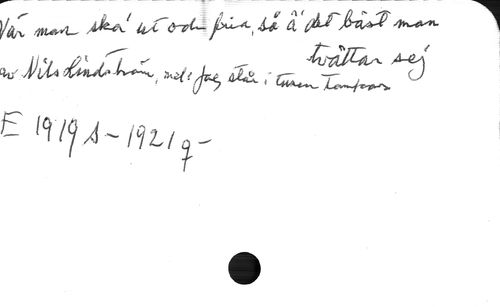 När man ska' ut och fria, så ä' det bäst man
tvättar sej
av Nils Lindström, mel: Jag står i tusen
E 1919 s - 1921 q -